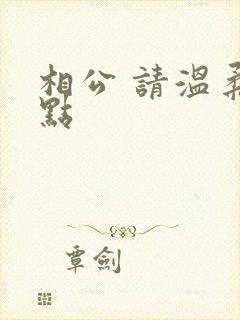 相公 請溫柔
點
覃劍